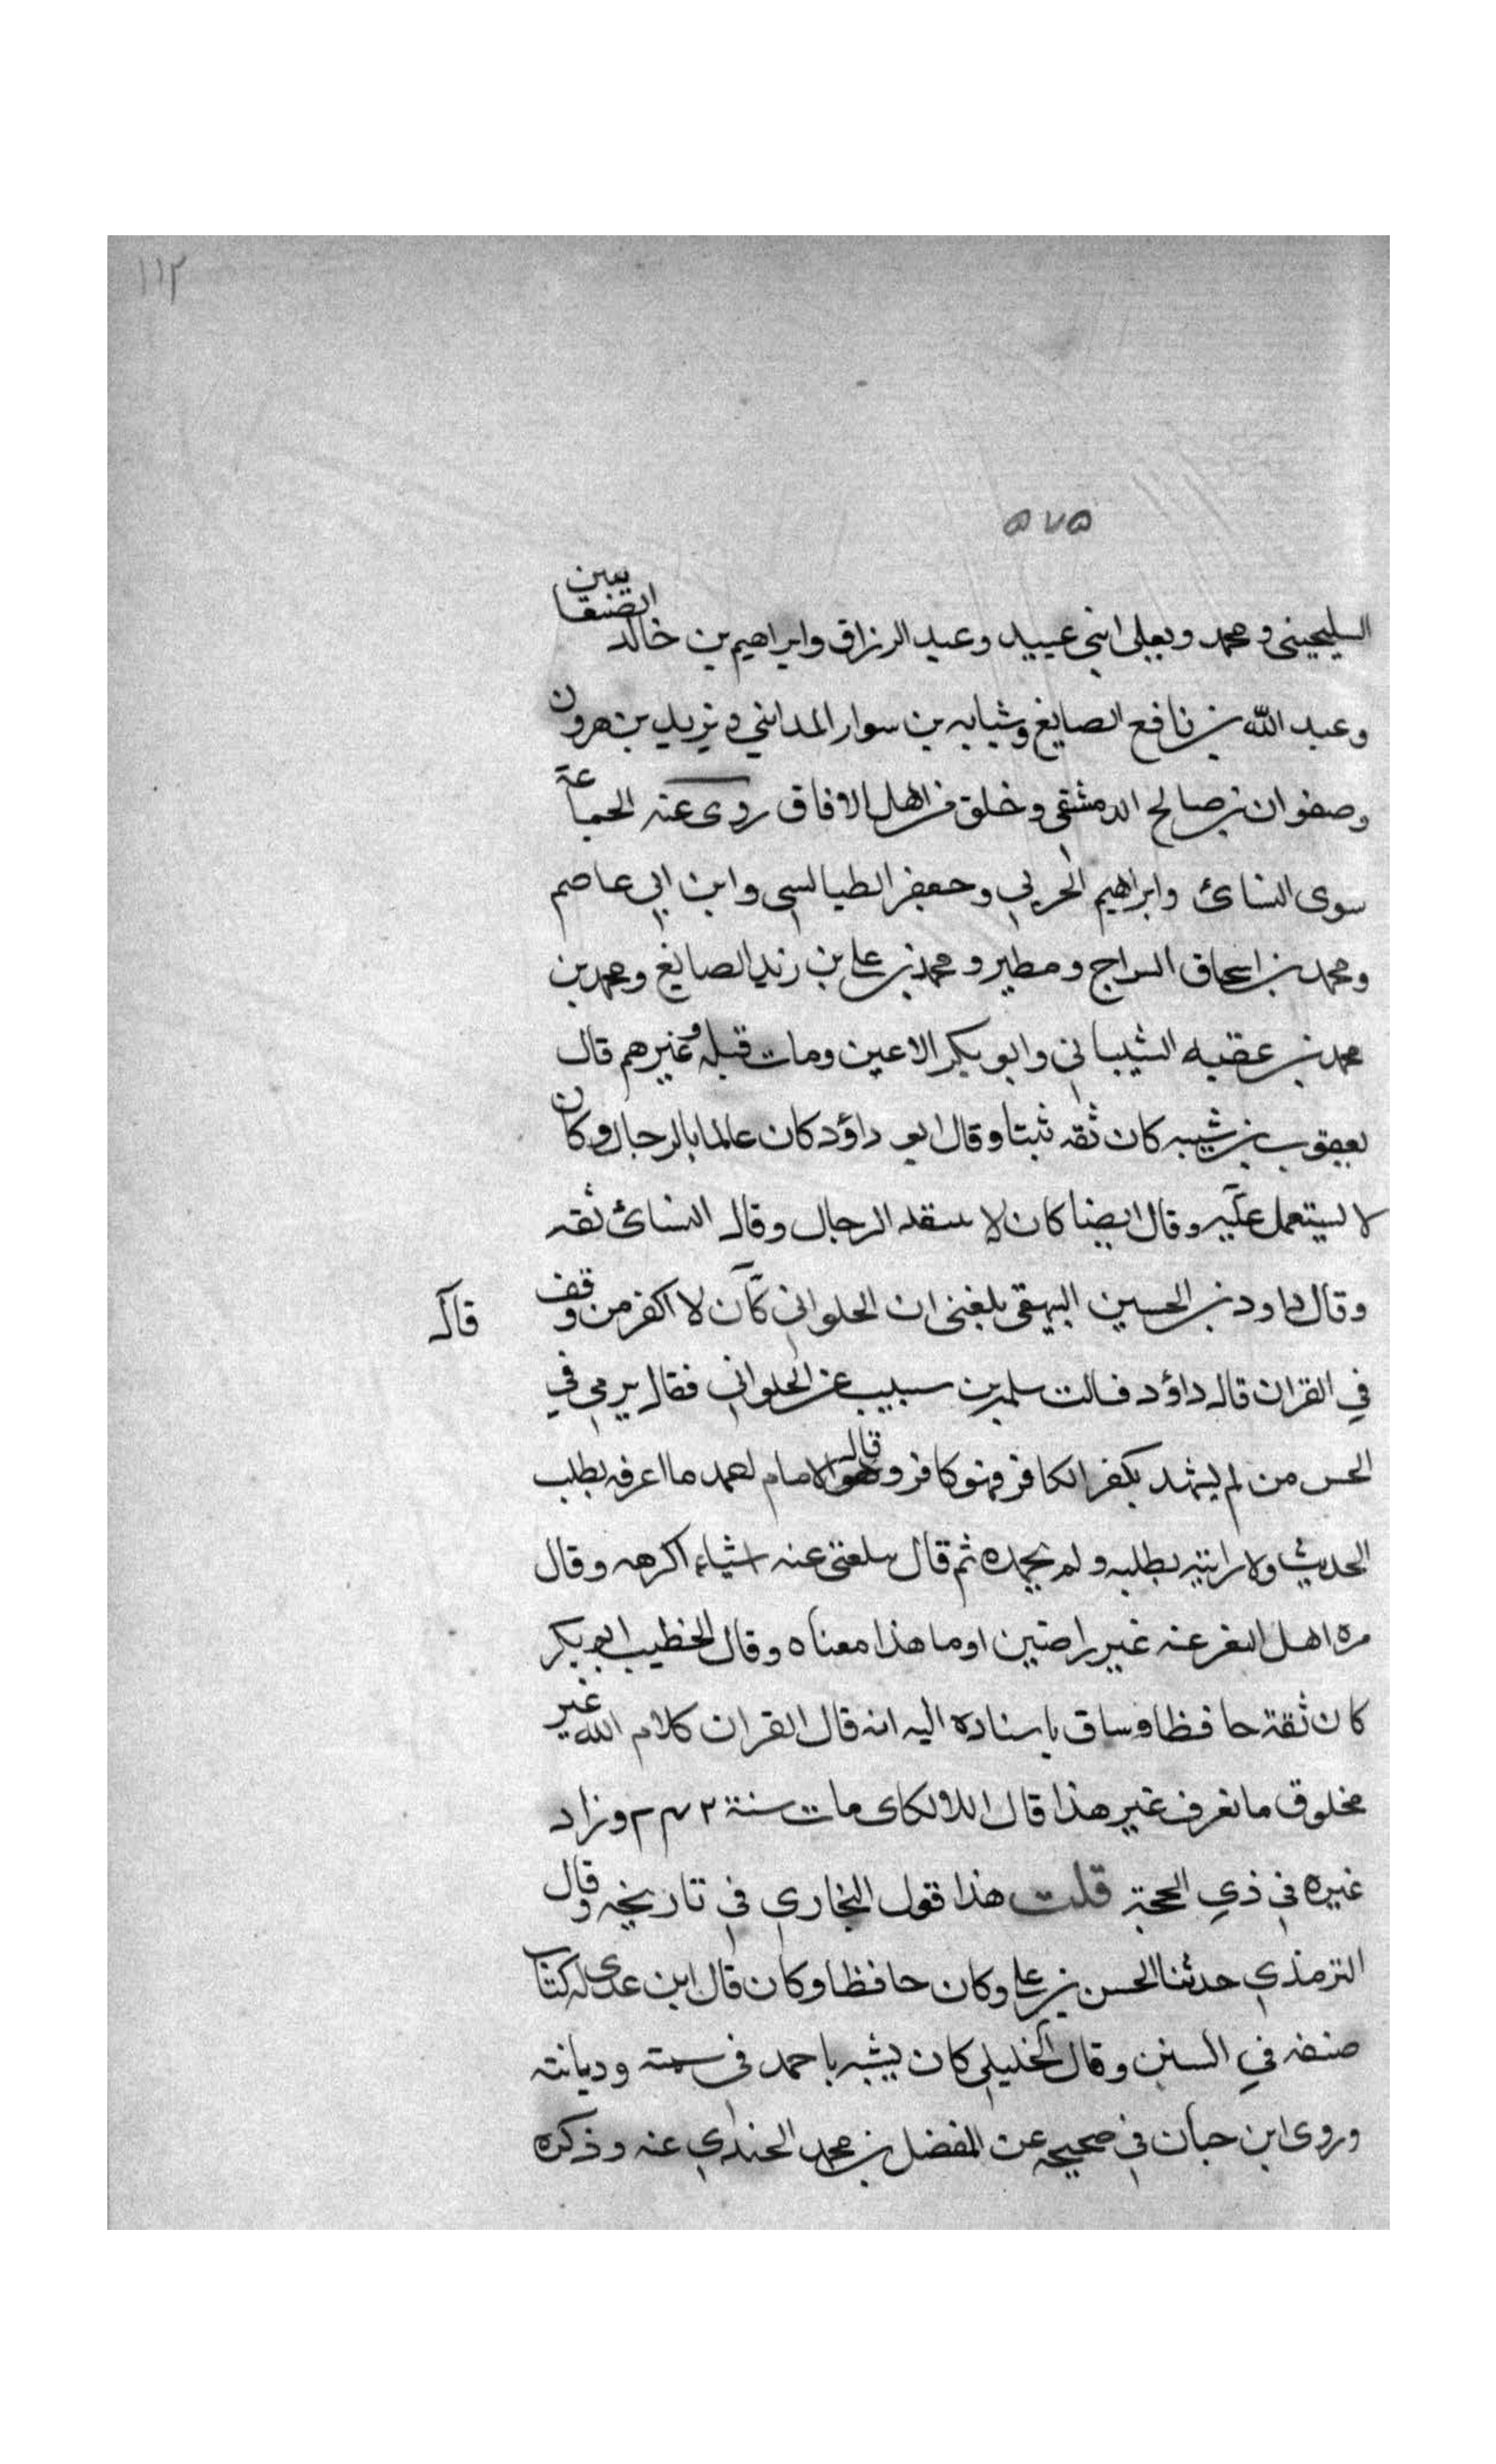 ١١٢
٥٧٥
السليحيني ومحمد ويعلى ابني عبيد وعبد الرزاق وابراهيم بن خالد الصنعانيين
وعبد الله بن نافع الصايغ وشبابه بن سوار المدايني ويزيد بن هرون
وصفوان بن صالح الدمشقي وخلق من اهل الافاق روى عنه الجماعة
سوى النسائ وابراهيم الحربي وجعفر الطيالسي وابن ابي عاصم
ومحمد بن اسحاق السراج ومطير ومحمد بن علي بن زيد الصايغ ومحمد بن
محمد بن عقبه الشيباني وابو بكر الاعين ومات قبله وغيرهم قال
يعقوب بن شيبه كان ثقه ثبتا وقال ابو داؤد كان عالما بالرجال وكان
لا يستعمل علمه وقال ايضا كان لا ينتقد الرجال وقال النسائ ثقه
وقال داود بن الحسين البيهقي بلغني ان الحلواني كان لا اكفر من وقف
قال
في القران قال داؤد فسالت سلمه بن سبيب عن الحلواني فقال يرمى في
الحس من لم يشهد بكفر الكافر فهو كافر وقال الامام احمد ما اعرفه بطلب
الحديث ولا رايته يطلبه ولم يحمده ثم قال يبلغني عنه اشياء اكرهه وقال
مره اهل الثغر عنه غير راضين او ما هذا معناه وقال الخطيب ابو بكر
كان ثقة حافظا وساق باسناده اليه انه قال القران كلام الله غير
مخلوق ما نعرف غير هذا قال اللالكاى مات سنة ٢٤٢ وزاد
غيره في ذي الحجة قلت هذا قول البخاري في تاريخه وقال
الترمذي حدثنا الحسن بن علي وكان حافظا وكان قال ابن عدي له كتاب
صنفه في السنن وقال الخليلي كان يشبه باحمد في سمته وديانته
وروى ابن حبان في صحيحه عن المفضل بن محمد الجندي عنه وذكره